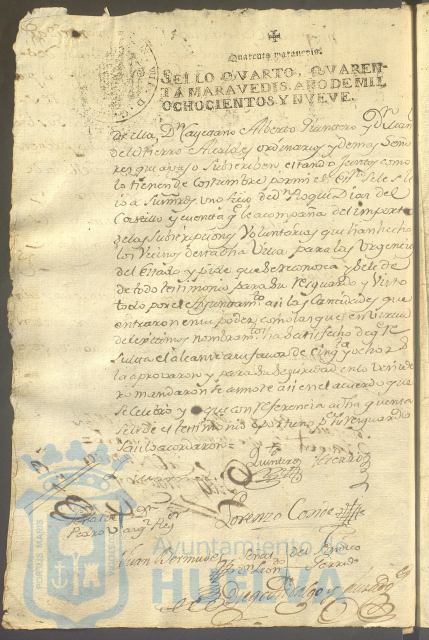 Quarenta maravedis.
SELLO QVARTO, QVAREN-
TA MARAVEDIS, AÑO DE MIL
OCHOCIENTOS Y NVEVE.
de ella, Dn Alberto Quintero y Dn Juan
del Hierro Alcaldes ordinarios y demas Seño
res que avajo Subscriben, estando juntos como
lo tienen de costumbre por mi el Essno se le le
io a Sus mrds uno de Dn Roque Diaz del
Castillo y cuenta qe le acompaña del importe
de las Subscripciones Voluntarias que han hecho
los Vecinos de esta dha Villa para las Urgencias
del Estado y pide que se reconosca y se le de
de todo testimonio para su resguardo y Visto
todo por el Ayuntamto asi las Cantidades que
entraron en su poder, como las que en Virtud
de ha satisfecho de qe re
sulta el alcance a su favor de cinqta y ocho rs
la aprovaron y para su seguridad en lo venide
ro mandaron se anote asi en el acuerdo que
se celebro y que con referencia a dha quenta
se le de el testimonio oportuno pa su resguardo
asi lo acordaron=
Quintero
Hierro
Pedro
Lorenzo Conde
Juan Bermudez
del
Diego Hidalgo y
PORTUS MARIS
Ayuntamiento de
HUELVA